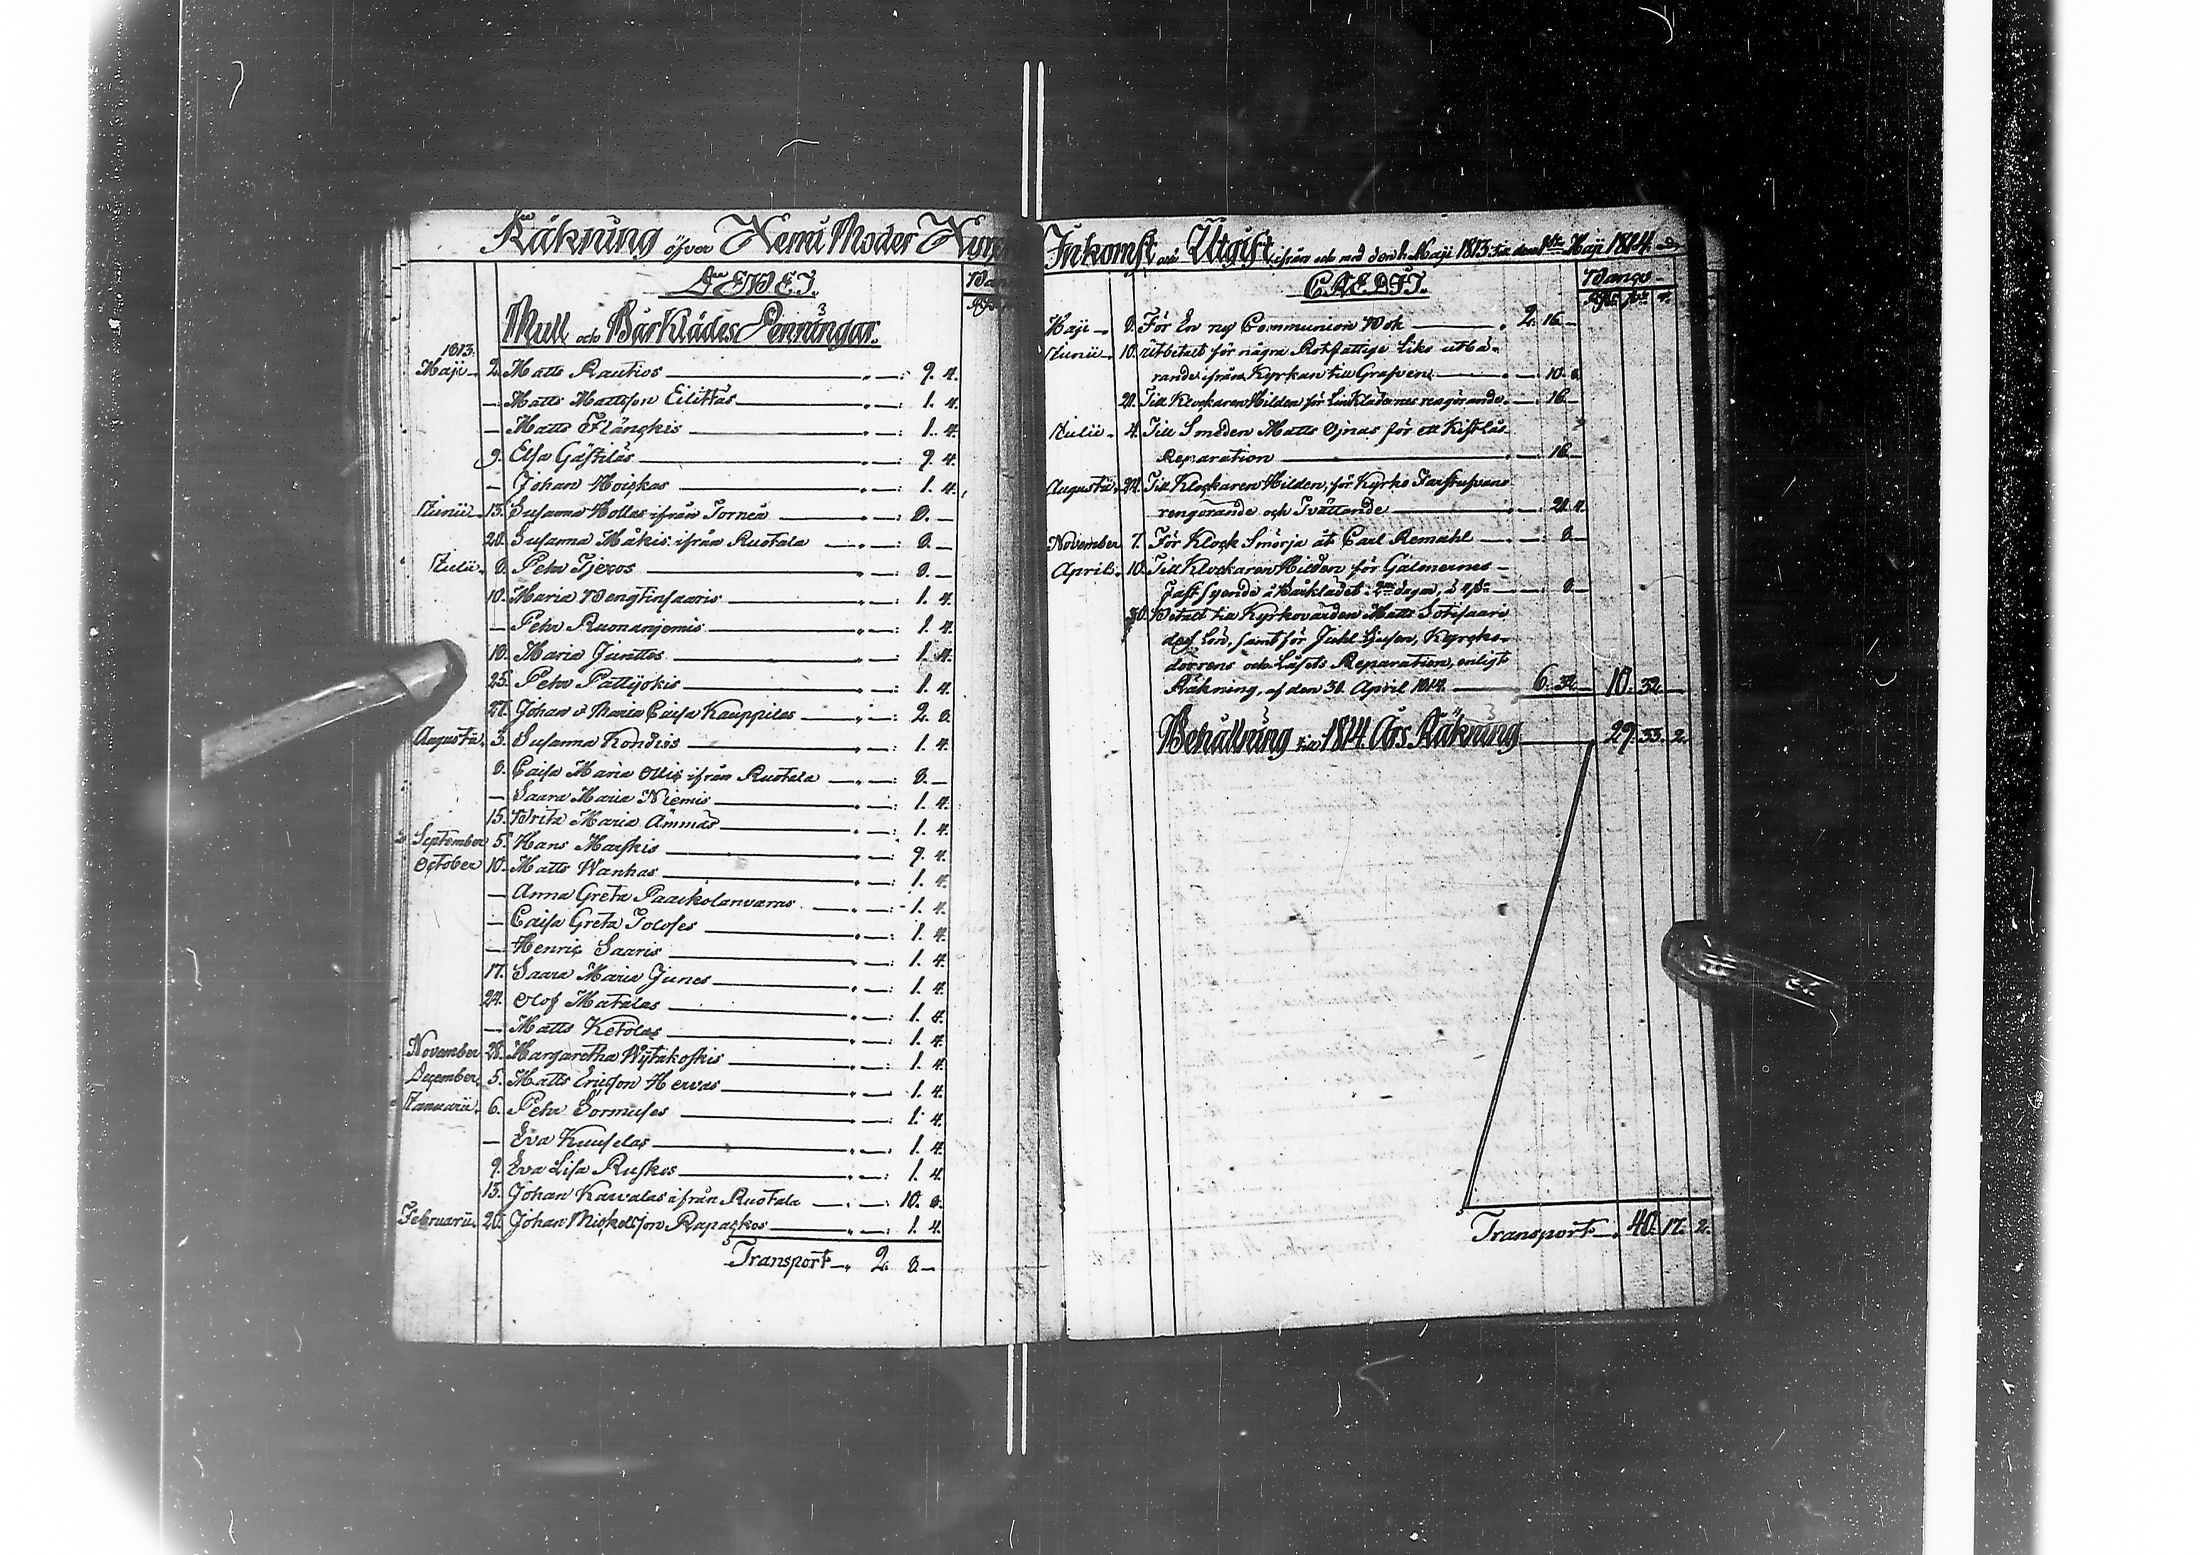 Räkning öfver Kemi Moder Kyr
DEBET.
Ban
Mull och Bårklädes Penningar.
1813.
Maji 2. Matts Rautios „ —: 9. 4.
— Matts Mattsson Eilittas „ —: 1. 4.
— Matts Flänckis „ —: 1. 4.
9. Elsa Gästiläs „ —: 9. 4.
— Johan Hoickas „ —: 1. 4.
Junii 13. Susanna Hollas ifrån Torneå „ —: 8. —
20. Susanna Mäkis ifrån Ruotala „ —: 8. —
Julii 8. Pehr Tjexos „ —: 8. —
10. Maria Bengtinsaaris „ —: 1. 4.
— Pehr Ruonanjomis „ —: 1. 4.
18. Maria Junttos „ —: 1. 4.
25. Pehr Pattijokis „ —: 1. 4.
27. Johan & Maria Caisa Kauppilas „ —: 2. 8.
Augusti 3. Susanna Kondiss „ —: 1. 4.
8. Caisa Maria Ollis ifrån Ruotala „ —: 8. —
— Saara Maria Niemis „ —: 1. 4.
15. Brita Maria Ämmäs „ —: 1. 4.
September 5. Hans Marskis „ —: 9. 4.
October 10. Matts Wanhas „ —: 1. 4.
— Anna Greta Paackolanvaras „ —: 1. 4.
— Caisa Greta Tolofes „ —: 1. 4.
— Henric Saaris „ —: 1. 4.
17. Saara Maria Junes „ —: 1. 4.
24. Olof Matalas „ —: 1. 4.
— Matts Ketolas „ —: 1. 4.
November 28. Margaretha Wijtakoskis „ —: 1. 4.
December 5. Matts Ericsson Hervas „ —: 1. 4.
Januarii 6. Pehr Sormuses „ —: 1. 4.
— Eva Kuuselas „ —: 1. 4.
9. Eva Lisa Ruskos „ —: 1. 4.
15. Johan Kawalas ifrån Ruotala „ —: 10. 8.
Februarii 20. Johan Mickelsson Rapackos „ —: 1. 4.
Transport „ 2. 8. —
Inkomst och Utgift ifrån och med den 1 Maji 1813 till den 1ste Maji 1814.
CREDIT.
Banco
Maji 8. För En ny Communion Bok „ 2. 16. —
Junii 10. Utbetalt för några Rotfattige Liks utbä-
rande ifrån Kyrkan till Grafven „ —: 10. 8.
20. Till Klockaren Hilden för Linklädernes rengörande „ —: 16. —
Julii 4. Till Smeden Matts Ojnas för ett Kistlås
Reparation „ —: 16. —
Augusti 24. Till Klockaren Hilden, för Kyrko
rengörande och Tvättande „ —: 21. 4.
November 7. För Klock Smörja åt Carl Remahl „ —: 8. —
April 10. Till Klockaren Hilden för Galmernes
fastsyende å Bårklädet
30. Betalt till Kyrkovärden Matts Sotisaari
dess Lön, samt för Juhl Ljusen, Kyrcko-
dörrens och Låsets Reparation, enligt
Räkning, af den 30. April 1814. 6. 32. 10. 32. —
Behållning till 1814 Års Räkning 29. 33. 2.
Transport 40. 17. 2.